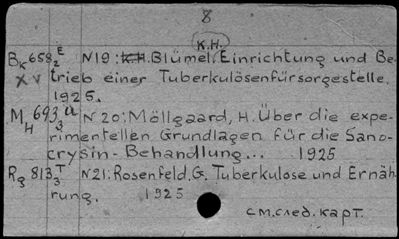 8
K.H.
Bk 658 E/2 N19: K.H. Blümel. Einrichtung und Be-
XV trieb einer Tuberkulösenfürsorgestelle.
1925.
MH 693 a/3 N20: Möllgaard, H. Über die expe-
rimentellen Grundlagen für die Sano-
crysin-Behandlung... 1925
Rg 813 T/3 N21: Rosenfeld, G. Tuberkulose und Ernäh-
rung. 1925
см.след.карт.